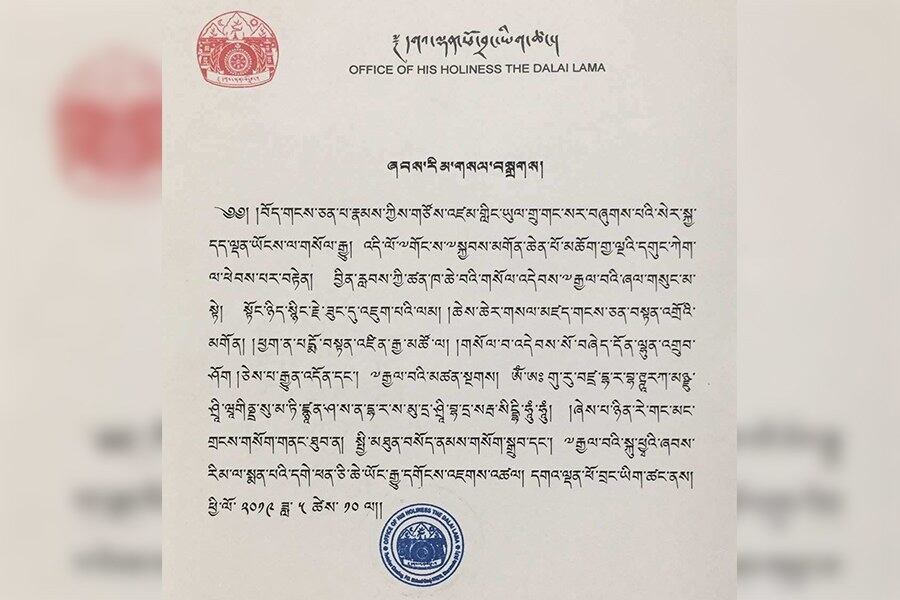 ༄༅། །དགའ་ལྡན་ཕོ་བྲང་ཡིག་ཚང་།
OFFICE OF HIS HOLINESS THE DALAI LAMA
ཞབས་རིམ་གསལ་བསྒྲགས།
༄༅། །བོད་གངས་ཅན་པ་རྣམས་ཀྱིས་གཙོས་འཛམ་གླིང་ཡུལ་གྲུ་གང་སར་བཞུགས་པའི་སེར་སྐྱ་
དད་ལྡན་ཡོངས་ལ་གསོལ་རྒྱུ། འདི་ལོ་༧གོང་ས་༧སྐྱབས་མགོན་ཆེན་པོ་མཆོག་གྱ་ལྔའི་དགུང་ཀེག་
ལ་ཕེབས་པར་བརྟེན། བྱིན་རླབས་ཀྱི་ཚན་ཁ་ཆེ་བའི་གསོལ་འདེབས་༧རྒྱལ་བའི་ཞལ་གསུང་མ་
སྟེ། སྟོང་ཉིད་སྙིང་རྗེ་ཟུང་དུ་འཇུག་པའི་ལམ། །ཆེས་ཆེར་གསལ་མཛད་གངས་ཅན་བསྟན་འགྲོའི་
མགོན། །ཕྱག་ན་པདྨོ་བསྟན་འཛིན་རྒྱ་མཚོ་ལ། །གསོལ་བ་འདེབས་སོ་བཞེད་དོན་ལྷུན་འགྲུབ་
ཤོག །ཅེས་པ་རྒྱུན་འདོན་དང་། ༧རྒྱལ་བའི་མཚན་སྔགས། ཨོཾ་ཨཱཿ་གུ་རུ་བཛྲ་དྷ་ར་བྷ་ཊྚཱ་རཀ་མཉྫུ་
ཤྲཱི་ཝཱགིནྡྲ་སུ་མ་ཏི་ཛྙཱན་ཤ་ས་ན་དྷ་ར་ས་མུ་དྲ་ཤྲཱི་བྷ་དྲ་སརྦ་སིདྡྷི་ཧཱུྃ་ཧཱུྃ། །ཞེས་པ་ཉིན་རེ་གང་མང་
གྲངས་གསོག་གནང་ཐུབ་ན། སྤྱི་མཐུན་བསོད་ནམས་གསོག་སྒྲུབ་དང་། ༧རྒྱལ་བའི་སྐུ་ཕྱྭའི་ཞབས་
རིམ་ལ་སྨན་པའི་དགེ་ཕན་ཅི་ཆེ་ཡོང་རྒྱུ་དགོངས་འཇགས་འཚལ། དགའ་ལྡན་ཕོ་བྲང་ཡིག་ཚང་ནས།
ཕྱི་ལོ་ ༢༠༡༩ ཟླ་ ༥ ཚེས་ ༡༠ ལ།།
OFFICE OF HIS HOLINESS THE DALAI LAMA